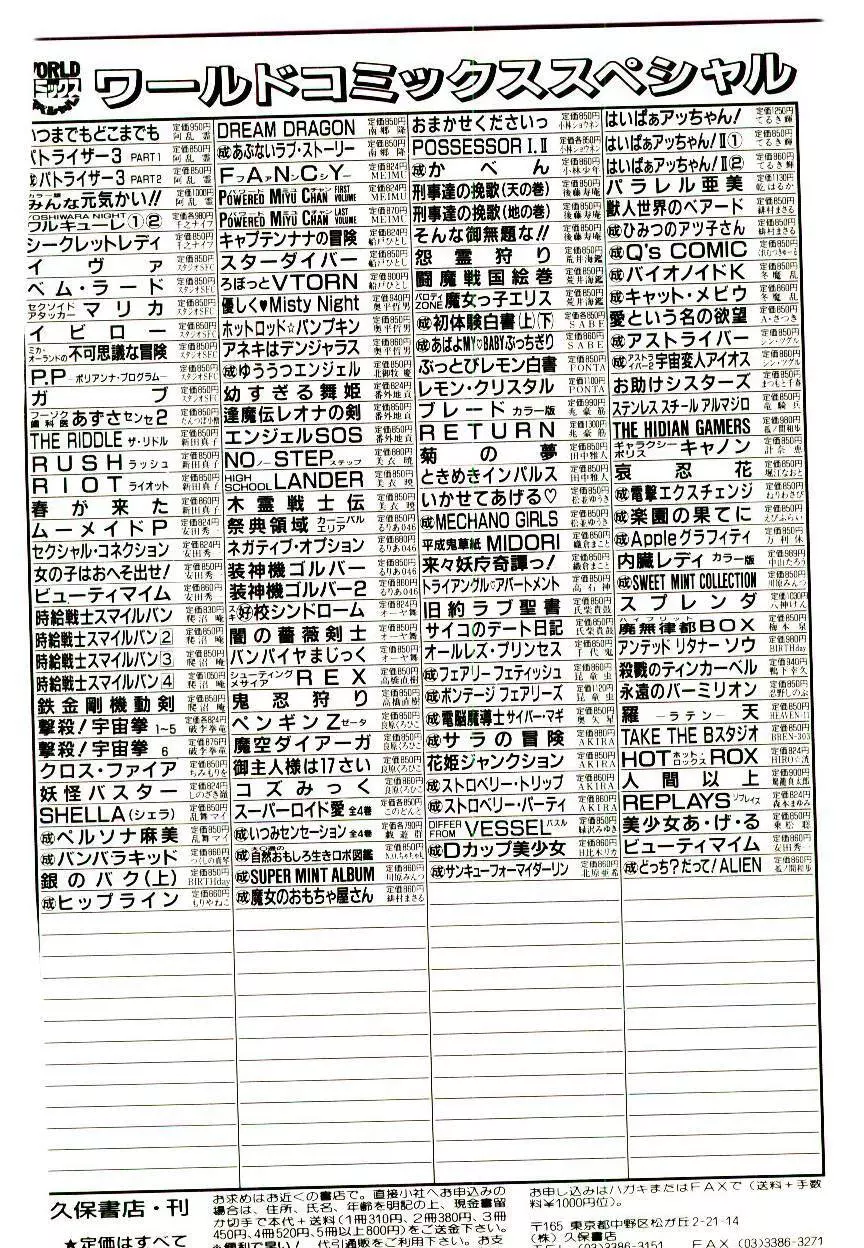 WORLD
ワールドコミックススペシャル
いつまでもどこまでも 定価950円 阿乱霊
バトライザー3 PART1 定価850円 阿乱霊
バトライザー3 PART2 定価850円 阿乱霊
みんな元気かい!! 定価1000円 阿乱霊
YOSHIWARA NIGHT
ワルキューレ①② 定価各980円
シークレットレディ 定価850円
イヴァ 定価850円 スタジオSFC
ベム・ラード 定価850円 スタジオSFC
セクソイドアタッカー マリカ 定価850円 スタジオSFC
イビロー 定価850円 スタジオSFC
ミカ・オーランドの不可思議な冒険 定価850円 スタジオSFC
P.P. ―ポリアンナ・プログラム― 定価850円 スタジオSFC
ガブ 定価850円 スタジオSFC
フーゾク歯科医 あずさセンセ2 定価850円
THE RIDDLE ザ・リドル 定価850円 新田真子
RUSH ラッシュ 定価850円 新田真子
RIOT ライオット 定価850円 新田真子
春が来た 定価860円 新田真子
ムーメイドP 定価824円 安田秀一
セクシャル・コネクション 定価824円 安田秀一
女の子はおへそ出せ! 定価850円 安田秀一
ビューティマイム 定価860円 安田秀一
時給戦士スマイルバン 定価830円 爬沼唵
時給戦士スマイルバン2 定価850円
時給戦士スマイルバン3 定価850円
時給戦士スマイルバン4 定価1050円
鉄金剛機動剣 定価850円
撃殺!宇宙拳 1~5 定価各824円 破李拳竜
撃殺!宇宙拳 6 定価876円 破李拳竜
クロス・ファイア 定価850円 ちみもりを
妖怪バスター 定価824円 しのざき嶺
SHELLA(シェラ) 定価850円 乱舞マイ
成ペルソナ麻美 定価850円 乱舞マイ
成バンバラキッド 定価860円 つくしの真琴
銀のバク(上) 定価850円 BIRTHday
成ヒップライン 定価860円 もりやねこ
DREAM DRAGON 定価850円 南郷隆
成あぶないラブ・ストーリー 定価850円
FANCY 定価824円 MEIMU
POWERED MIYU CHAN FIRST VOLUME 定価824円 MEIMU
POWERED MIYU CHAN LAST VOLUME 定価870円 MEIMU
キャプテンナナの冒険 定価824円 船戸ひとし
スターダイバー 定価850円 船戸ひとし
ろぼっとVTORN 定価800円 船戸ひとし
優しく♥Misty Night 定価840円 奥平哲男
ホットロッド☆パンプキン 定価850円 奥平哲男
アネキはデンジャラス 定価860円 奥平哲男
成ゆううつエンジェル 定価850円 北御牧慶
幼すぎる舞姫 定価824円 番外地貢
逢魔伝レオナの剣 定価850円 番外地貢
エンジェルSOS 定価850円 番外地貢
NO ノー STEP ステップ 定価860円 美衣暁
HIGH SCHOOL LANDER 定価850円 美衣暁
木霊戦士伝 定価850円 るりあ046
祭典領域 カーニバルエリア 定価850円 るりあ046
ネガティブ・オプション 定価880円 るりあ046
装神機ゴルバー 定価850円 るりあ046
装神機ゴルバー2 定価860円 るりあ046
スキ好校シンドローム 定価824円 オーヤ舞
闇の薔薇剣士 定価850円 オーヤ舞
バンパイヤまじっく 定価850円 オーヤ舞
シューティングメサイア REX 定価850円 高橋直樹
鬼忍狩り 定価850円 高橋直樹
ペンギンZ ゼータ 定価850円 良原くろひこ
魔空ダイアーガ 定価850円 良原くろひこ
御主人様は17さい 定価850円 良原くろひこ
コズみっく 定価850円 良原くろひこ
スーパーロイド愛 全4巻 定価各850円 このどんと
成いつみセンセーション 全4巻 定価各790円 戯遊群
成自然おもしろ生きロボ図鑑 定価850円
成SUPER MINT ALBUM 定価860円 川原みんつ
成魔女のおもちゃ屋さん 定価860円 緋村まさる
おまかせくださいっ 定価850円 小林ショウネン
POSSESSOR I.II 定価各850円 小林ショウネン
成かべん 定価860円 小林少年
刑事達の挽歌(天の巻) 定価850円 後藤寿庵
刑事達の挽歌(地の巻) 定価850円 後藤寿庵
そんな御無題な!! 定価850円 後藤寿庵
怨霊狩り 定価850円 荒井海鑑
闘魔戦国絵巻 定価850円 荒井海鑑
パロディZONE 魔女っ子エリス 定価850円 荒井海鑑
成初体験白書(上)(下) 定価各850円 SABE
成あばよMY♡BABYぶっちぎり 定価860円 SABE
ぶっとびレモン白書 定価850円 PONTA
レモン・クリスタル 定価1100円 PONTA
ブレード カラー版 定価990円 兆豪筋
RETURN 定価1300円 兆豪筋
菊の夢 定価850円 田中雅人
ときめきインパルス 定価850円 田中雅人
いかせてあげる♡ 定価850円 松並ゆうき
成MECHANO GIRLS 定価850円 松並ゆうき
平成鬼草紙 MIDORI 定価850円 織倉まこと
来々妖斥奇譚っ! 定価850円 織倉まこと
トライアングル♡アパートメント 定価850円 高石神
旧約ラブ聖書 定価850円 氏柴貴鼓
サイコのデート日記 定価850円 氏柴貴鼓
オールレズ・プリンセス 定価850円 千代鬼
成フェアリーフェティッシュ 定価860円 昆童虫
成ボンデージフェアリーズ 定価1120円 昆童虫
成電脳魔導士サイバー・マギ 定価850円 奥久星
成サラの冒険 定価880円 AKIRA
花姫ジャンクション 定価850円 AKIRA
成ストロベリー・トリップ 定価850円 AKIRA
成ストロベリー・パーティ 定価850円 AKIRA
DIFFER FROM VESSEL バスル 定価850円 城沢みゆき
成Dカップ美少女 定価860円 日比木リカ
成サンキューフォーマイダーリン 定価860円 北原亜希
はいぱぁアッちゃん! 定価1250円 てるき輝
はいぱぁアッちゃん!II① 定価850円 てるき輝
はいぱぁアッちゃん!II② 定価860円 てるき輝
パラレル亜美 定価1130円 乾はるか
獣人世界のベアード 定価850円 緋村まさる
成ひみつのアツ子さん 定価850円 緋村まさる
成Q's COMIC 定価850円
成バイオノイドK 定価850円 冬魔乱
成キャット・メビウ 定価860円 冬魔乱
愛という名の欲望 定価850円 A・さつき
成アストライバー 定価850円 シン・ツグル
成アストライバー2 宇宙変人アイオス 定価860円 シン・ツグル
お助けシスターズ 定価850円 まつもと千春
ステンレススチールアルマジロ 定価850円 竜騎兵
THE HIDIAN GAMERS 定価980円
ギャラクシーポリス キャノン 定価860円 計奈恵
哀忍花 定価850円 堀江なおと
成電撃エクスチェンジ 定価850円 ねりわさび
成楽園の果てに 定価850円 えびふらい
成Appleグラフィティ 定価860円 力利休
内臓レディ カラー版 定価989円 中山たろう
成SWEET MINT COLLECTION 定価850円 川原みんつ
スプレンダ 定価1030円 八神けん
ハイブリット 魔無律都BOX 定価850円 梅本泉
アンデッド リタナー ソウ 定価980円 BIRTHday
殺戮のティンカーベル 定価840円 鴨下幸久
永遠のバーミリオン 定価850円 忍野しのぶ
羅 ―ラテン― 天 定価850円 HEAVEN-11
TAKE THE Bスタジオ 定価850円 BREN-303
HOT ホット・ロックス ROX 定価824円 HIRO☆浅
人間以上 定価900円
REPLAYS リプレイズ 定価824円 森本まゆみ
美少女あ・げ・る 定価850円 東松聡
ビューティマイム 定価860円 安田秀一
成どっち?だって!ALIEN 定価860円
久保書店・刊
★定価はすべて
お求めはお近くの書店で。直接小社へお申込みの
場合は、住所、氏名、年齢を明記の上、現金書留
か切手で本代+送料(1冊310円、2冊380円、3冊
450円、4冊520円、5冊以上800円)をご送金下さい。
★便利で早い! 代引通販をご利用下さい。お支
お申し込みはハガキまたはFAXで(送料+手数
料¥1000円位)。
〒165 東京都中野区松が丘2-21-14
(株)久保書店
TEL (03)3386-3151 FAX (03)3386-3271